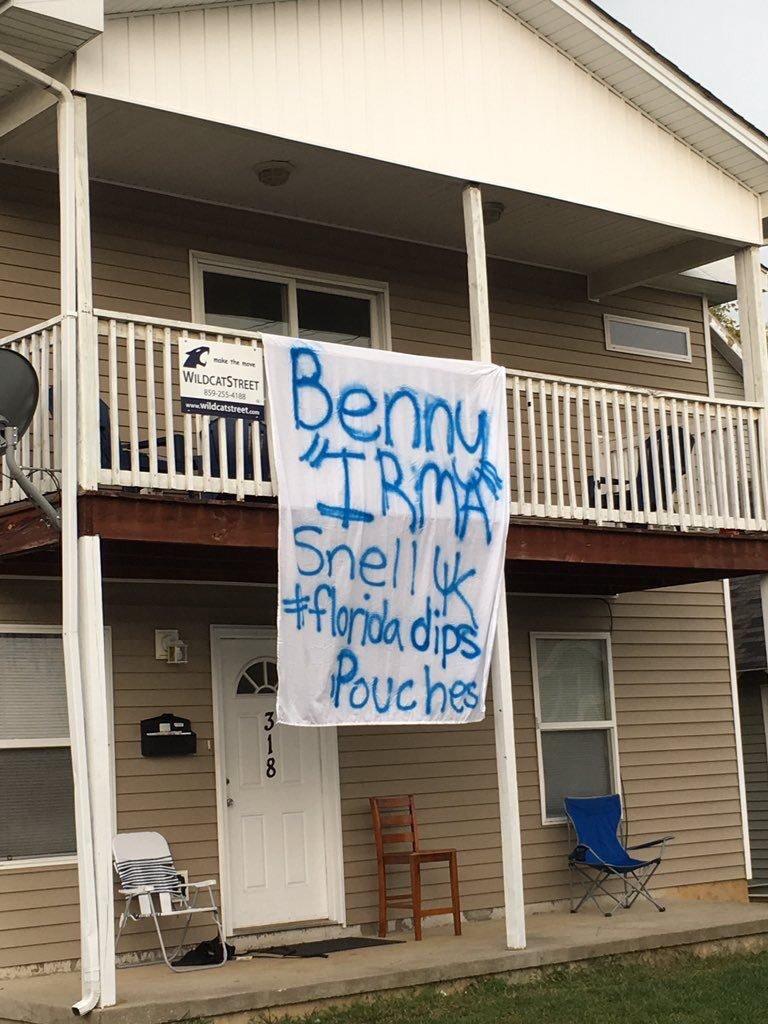 make the move
WILDCATSTREET
859-255-4188
www.wildcatstreet.com
Benny
"IRMA"
Snell UK
#florida dips
Pouches
318